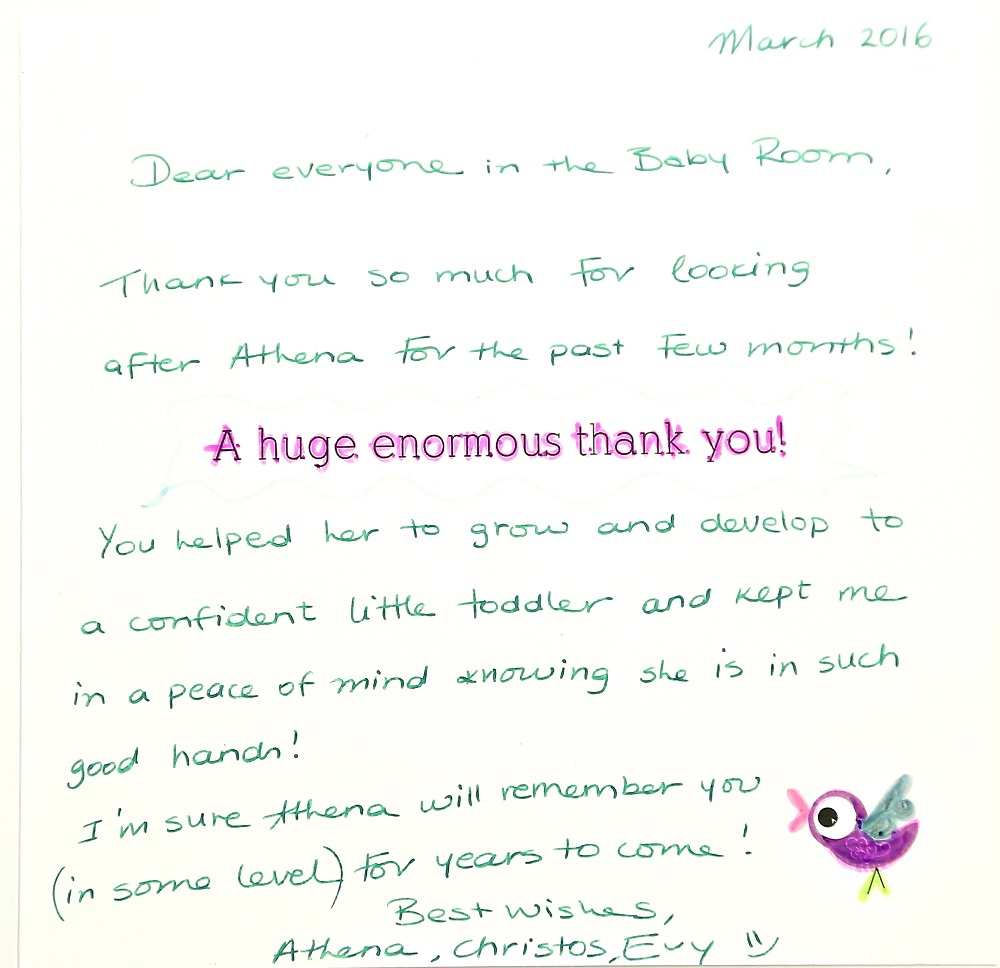 March 2016
Dear everyone in the Baby Room,
Thank you so much for looking
after Athena for the past few months!
A huge enormous thank you!
You helped her to grow and develop to
a confident little toddler and kept me
in a peace of mind knowing she is in such
good hands!
I'm sure Athena will remember you
(in some level) for years to come!
Best wishes,
Athena, Christos, Evy